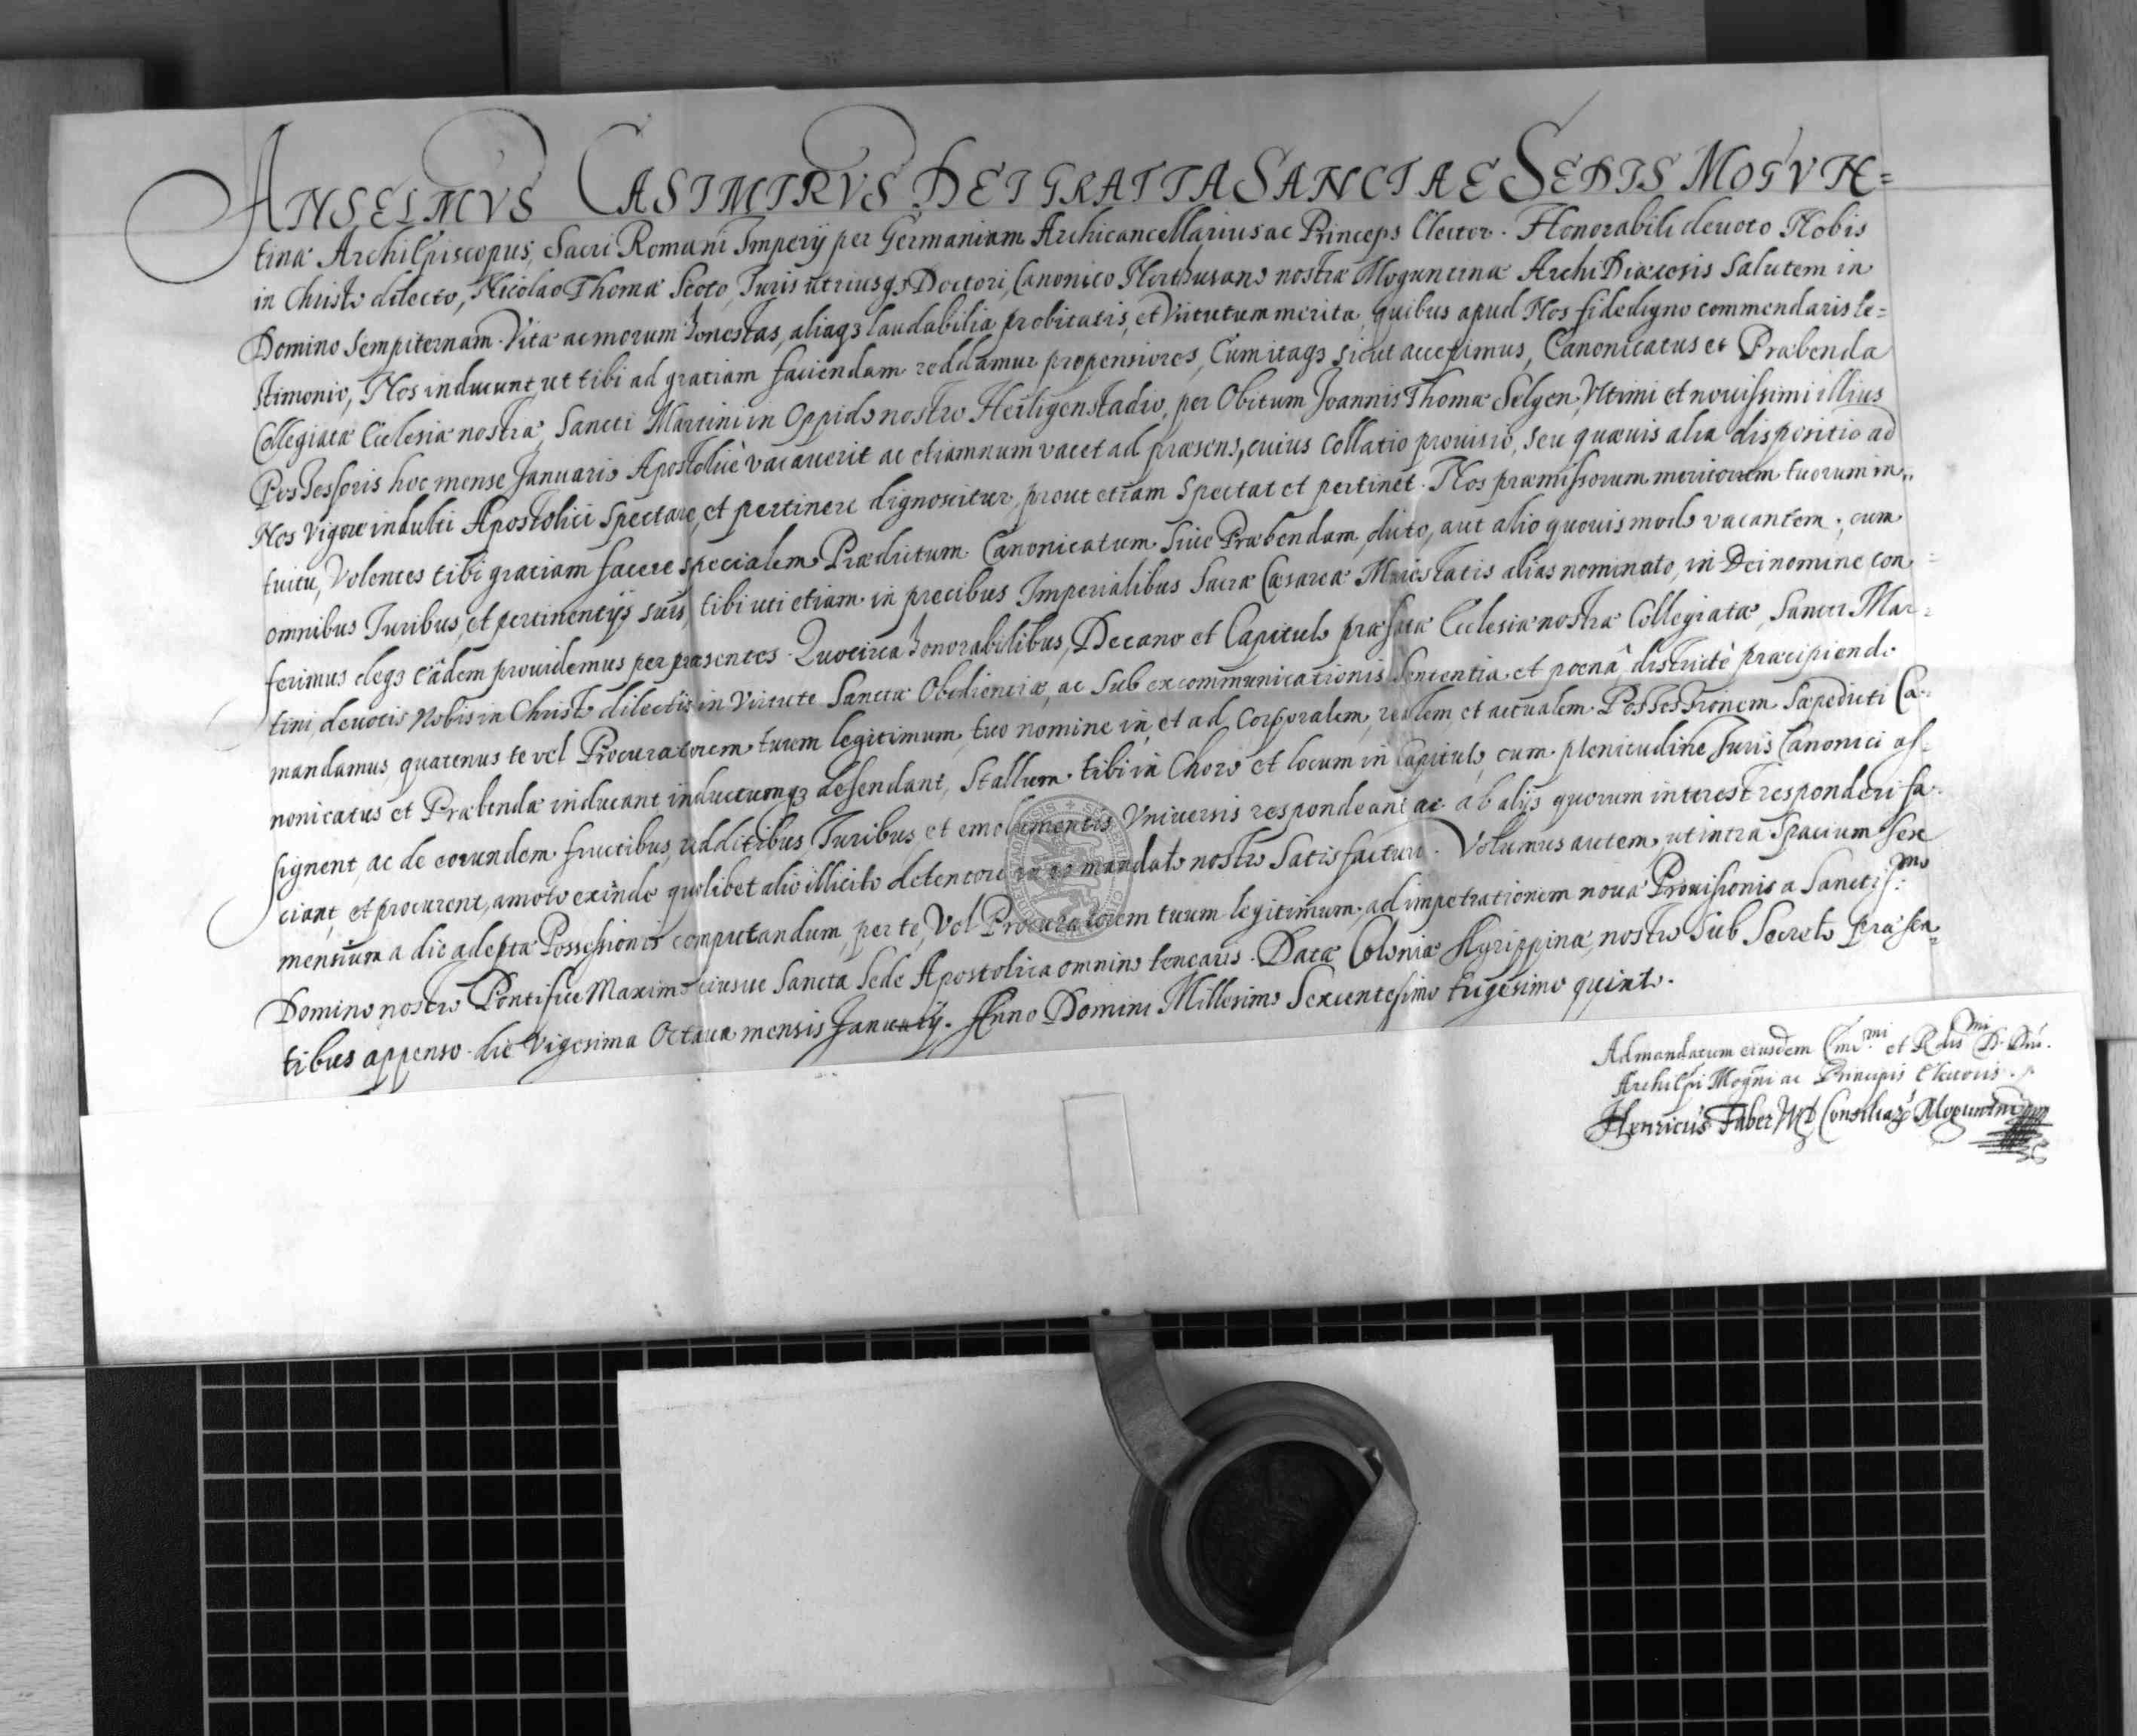 ANSELMVS CASIMIRVS DEI GRATIA SANCTAE SEDIS MOGVN=
tinæ ArchiEpiscopus, Sacri Romani Imperij per Germaniam Archicancellarius ac Princeps Elector. Honorabili deuoto Nobis
in Christo dilecto, Nicolao Thomæ Scoto, Juris utriusq3 Doctori, Canonico Northusano nostræ Moguntinæ ArchiDiæcesis Salutem in
Domino Sempiternam. Vitæ ac morum honestas, aliaq3 laudabilia probitatis, et Virtutum merita, quibus apud Nos fidedigno commendaris te=
stimonio, Nos inducunt, ut tibi ad gratiam faciendam reddamur propensiores, Cum itaq3 sicut accepimus, Canonicatus et Præbenda
Collegiatæ Ecclesiæ nostræ, Sancti Martini in Oppido nostro Heiligenstadio, per Obitum Joannis Thomæ Selgen, Vltimi et nouissimi illius
Possessoris hoc mense Januario Apostolico vacauerit ac etiamnum vacet ad præsens, cuius Collatio prouisio, seu quæuis alia dispositio ad
Nos vigore indulti Apostolici Spectare, et pertinere dignoscitur, prout etiam Spectat et pertinet. Nos præmissorum meritorum tuorum in=
tuitu, Volentes tibi gratiam facere specialem Prædictum Canonicatum Siue Præbendam, dicto, aut alio quouis modo vacantem, cum
omnibus Juribus, et pertinentijs suis, tibi uti etiam in precibus Imperialibus Sacræ Cæsareæ Maiestatis alias nominato, in Dei nomine con=
ferimus deq3 eâdem prouidemus per præsentes. Quocirca honorabilibus, Decano et Capitulo præfatæ Ecclesiæ nostræ Collegiatæ, Sancti Mar=
tini, deuotis Nobis in Christo dilectis in Virtute Sanctæ Obedientiæ, ac Sub excommunicationis Sententia et poenâ districtè præcipiendo
mandamus, quatenus te vel Procuratorem tuum legitimum, tuo nomine in, et ad, Corporalem, realem, et actualem Possessionem Sæpedicti Ca=
nonicatus et Præbendæ inducant inductumq3 defendant, Stallum tibi in Choro et locum in Capitulo, cum plenitudine Juris Canonici as=
signent, ac de eorundem fructibus, redditibus Juribus, et emolumentis, Vniuersis respondeant ac ab alijs quorum interest responderi fa=
ciant, et procurent, amoto exinde quolibet alio illicito detentore in eo mandato nostro Satisfacturi. Volumus autem, ut intra Spacium Sex
mensium a die adeptæ Possessionis computandum, per te, Vel Procuratorem tuum legitimum, ad impetrationem nouæ Prouisionis a Sanctiss:mo
Domino nostro Pontifice Maximo eiusue Sancta Sede Apostolica omnino tenearis. Datæ Coloniæ Agrippinæ, nostro Sub Secreto præsen=
tibus appenso. die Vigesima Octaua mensis Januarij. Anno Domini Millesimo Sexcentesimo trigesimo quinto.
Ad mandatum eiusdem Emi:mi et Rdis:mi D. Dni.
Archiepi Mogni ac Principis Electoris.
Henricus Faber